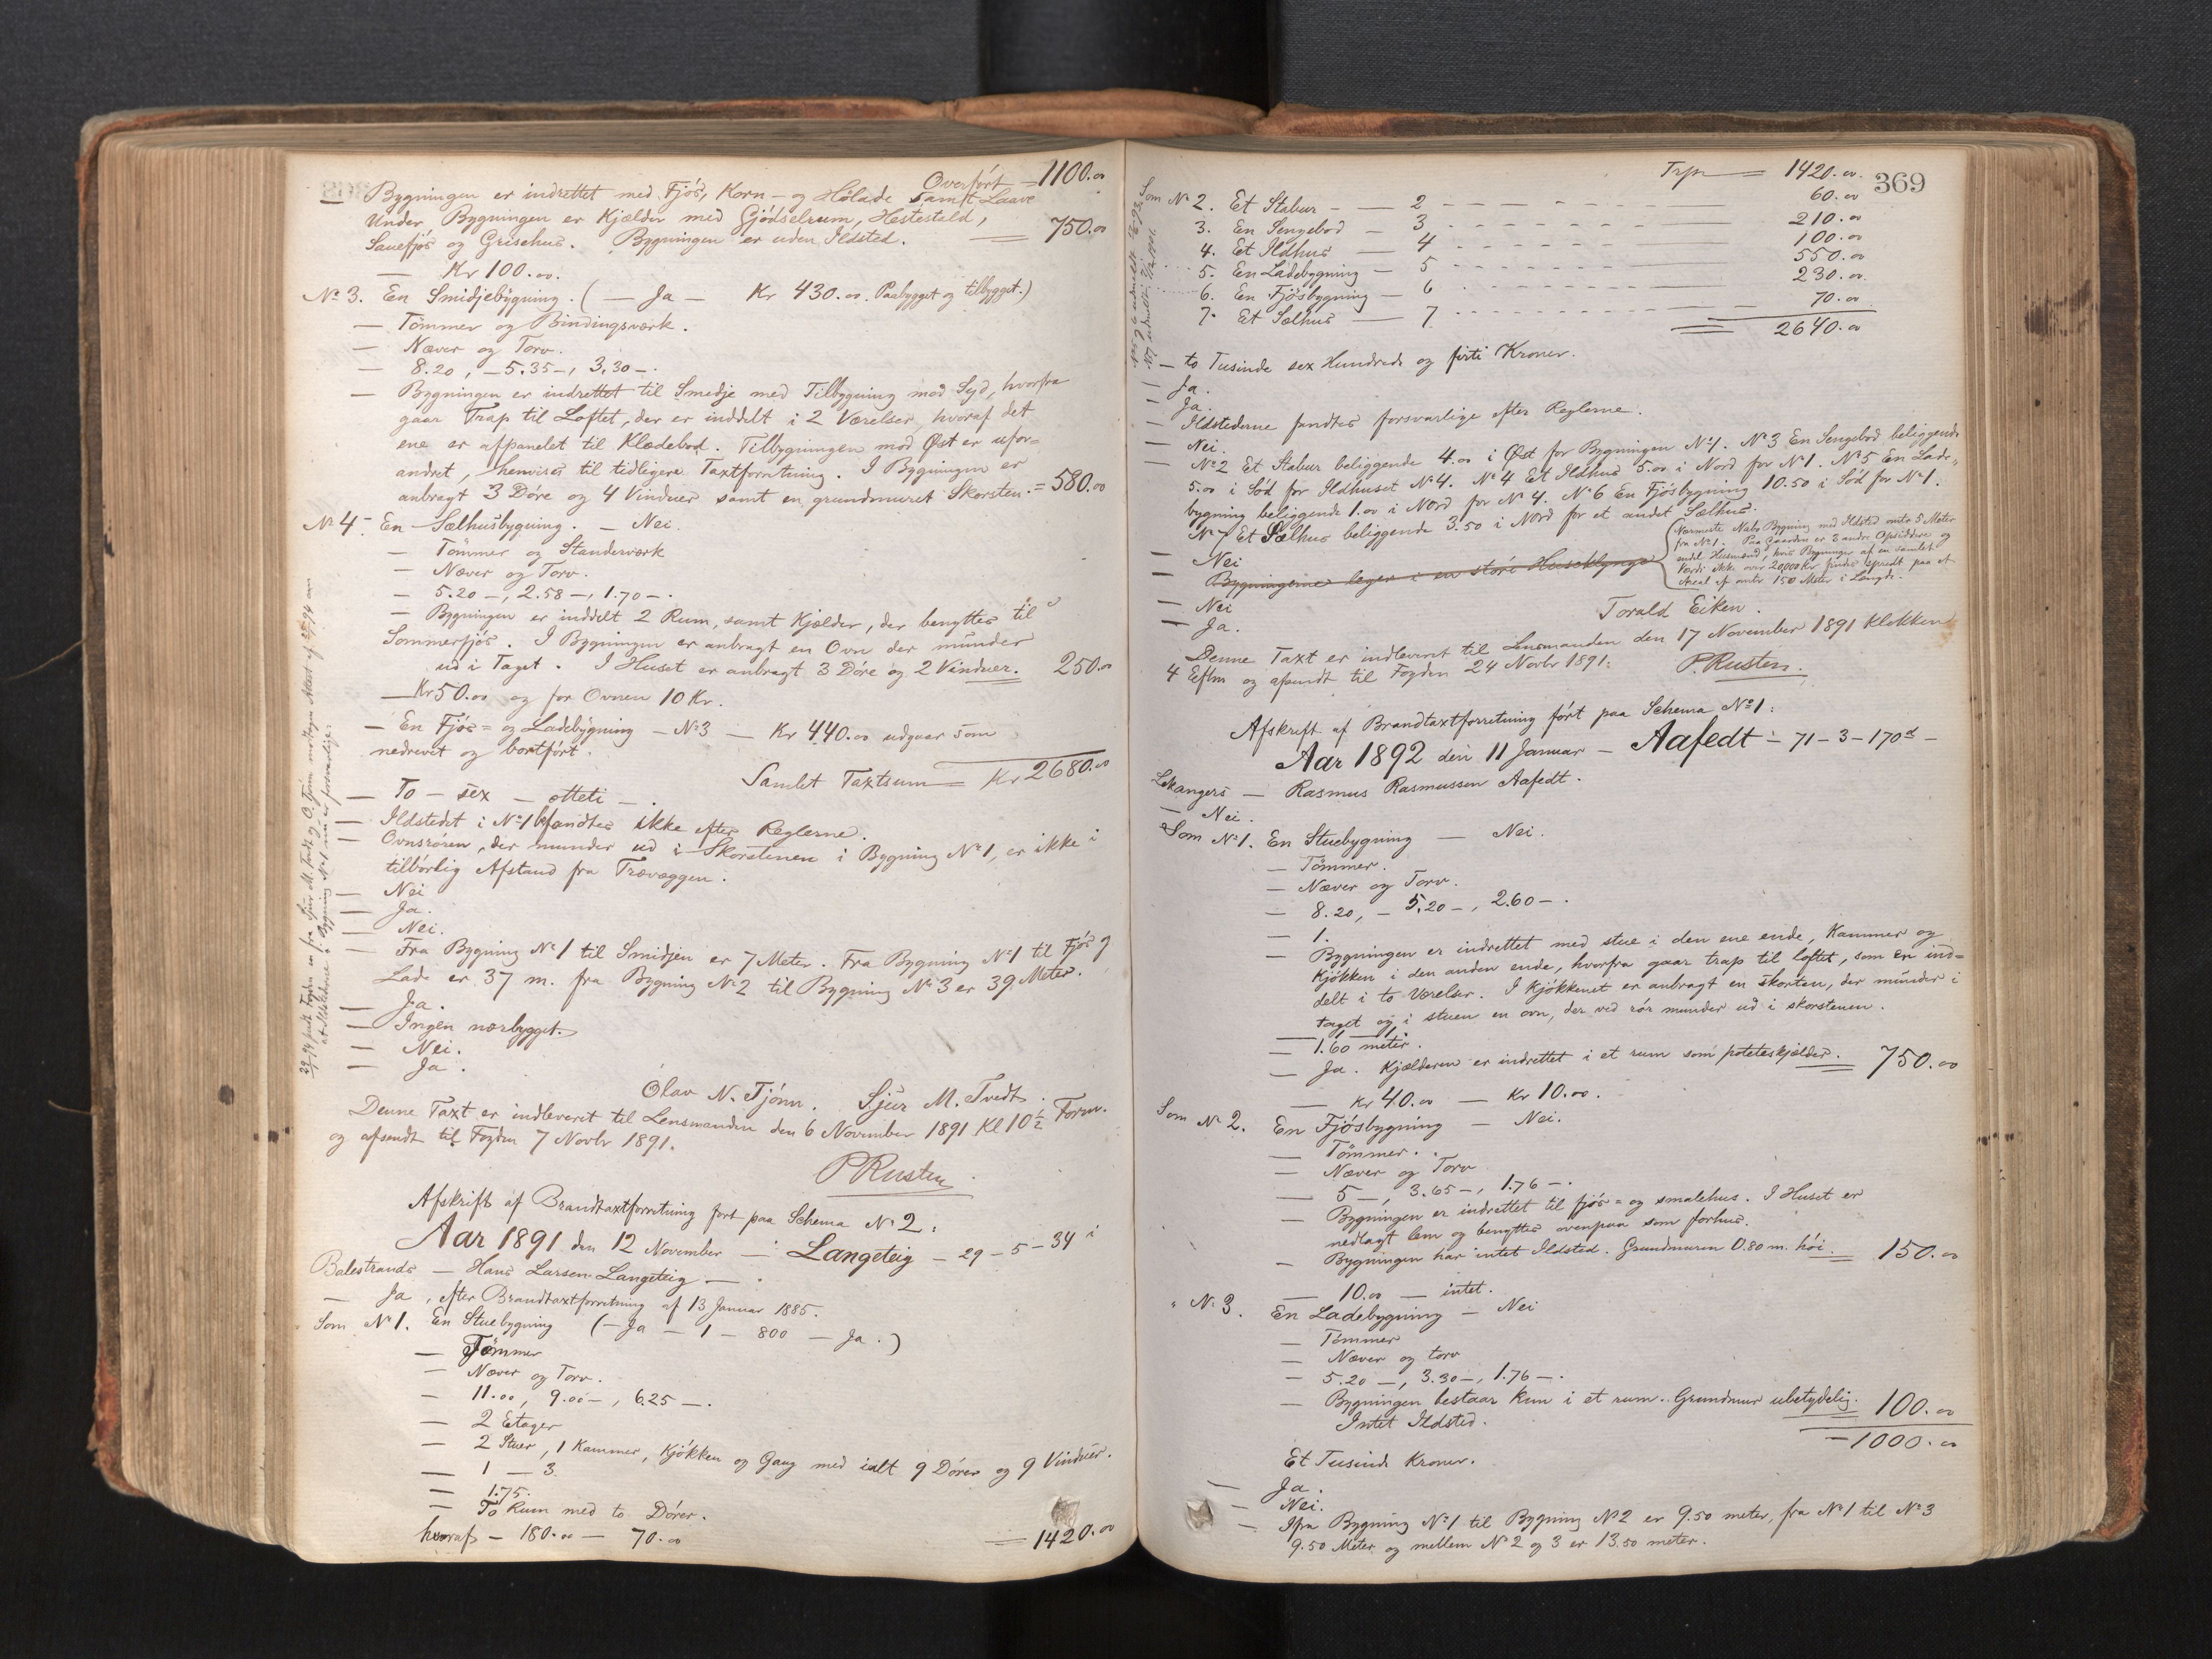 Overført = 1100.00
Bygningen er indrettet med Fjøs, Korn- og Hølade samt Laave
Under Bygningen er Kjælder med Gjødselrum, Hestestald,
Sauefjøs og Grisehus. Bygningen er uden Ildsted. = 750.00
— Kr 100.00.
No 3. En Smidjebygning. (— Ja — Kr 430.00. Paabygget og tilbygget.)
— Tømmer og Bindingsværk.
— Næver og Torv.
— 8.20, — 5.35 —, 3.30 —.
— Bygningen er indrettet til Smedje med Tilbygning mod Syd, hvorfra
gaar Trap til Loftet, der er inddelt i 2 Værelser, hvoraf det
ene er afpanelet til Klædebod. Tilbygningen mod Øst er ufor=
andret, henvises til tidligere Taxtforretning. I Bygningen er
anbragt 3 Døre og 4 Vinduer samt en grundmuret Skorsten. = 580.00
No 4. En Sælhusbygning. — Nei.
— Tømmer og Standerværk
— Næver og Torv.
— 5.20 —, 2.58 —, 1.70 —.
— Bygningen er inddelt 2 Rum, samt Kjælder, der benyttes til
Sommerfjøs. I Bygningen er anbragt en Ovn der munder
ud i Taget. I Huset er anbragt 3 Døre og 2 Vinduer. 250.00
— Kr 50.00 og for Ovnen 10 Kr.
— En Fjøs= og Ladebygning — No 3 — Kr 440.00 udgaar som
nedrevet og bortført.
Samlet Taxtsum = Kr 2680.00
— To — sex — otteti —.
— Ildstedet i No 1 fandtes ikke efter Reglerne.
— Ovnsrøren, der munder ud i Skorstenen i Bygning No 1, er ikke i
tilbørlig Afstand fra Trævæggen.
— Nei
— Ja.
— Nei.
— Fra Bygning No 1 til Smidjen er 7 Meter. Fra Bygning No 1 til Fjøs og
Lade er 37 m. fra Bygning No 2 til Bygning No 3 er 39 Meter.
— Ja.
— Ingen nærbygget.
— Nei.
— Ja.
Olav N. Tjønn. Sjur M. Tvedt.
Denne Taxt er indleveret til Lensmanden den 6 November 1891 Kl 10½ Form.
og afsendt til Fogden 7 Novbr 1891.
P Rusten
Afskrift af Brandtaxtforretning ført paa Schema No 2:
Aar 1891 den 12 November — Langeteig — 29 — 5 — 34 i
Balestrands — Hans Larsen Langeteig —.
— Ja, efter Brandtaxtforretning af 13 Januar 1885.
Som No 1. En Stuebygning (— Ja — 1 — 800 — Ja.)
— Tømmer
— Næver og Torv.
— 11.00, 9.00 —, 6.25 —.
— 2 Etager
— 2 Stuer, 1 Kammer, Kjøkken og Gang med ialt 9 Dører og 9 Vinduer.
— 1 — 3.
— 1.75.
— To Rum med to Dører.
hvoraf — 180.00 — 70.00 = 1420.00
369
Trpr = 1420.00.
Som No 2. Et Stabur — 2 — 60.00
3. En Sengebod — 3 — 210.00
4. Et Ildhus — 4 — 100.00
5. En Ladebygning — 5 — 550.00
6. En Fjøsbygning — 6 — 230.00
7. Et Sælhus — 7 — 70.00
2640.00
— to Tusinde sex Hundrede og firti Kroner.
— Ja.
— Ja.
— Ildstederne fandtes forsvarlige efter Reglerne.
— Nei.
— No 2 Et Stabur beliggende 4.00 i Øst for Bygningen No 1. No 3 En Sengebod beliggende
5.00 i Sød for Ildhuset No 4. No 4 Et Ildhus 5.00 i Nord for No 1. No 5 En Lade=
bygning beliggende 1.00 i Nord for No 4. No 6 En Fjøsbygning 10.50 i Sød for No 1.
No 7 Et Sælhus beliggende 3.50 i Nord for et andet Sælhus.
— Nei
Bygningerne leger i en større Huseklynge
Nærmeste Nabo Bygning med Ildsted omtr 5 Meter
fra No 1. Paa Gaarden er 3 andre Opsiddere og
endel Husmænd, hvis Bygninger af en samlet
Værdi ikke over 20,000 Kr findes spredt paa et
Areal af omtr 150 Meter i Længde.
— Nei
— Ja.
Torald Eiken.
Denne Taxt er indleveret til Lensmanden den 17 November 1891 Klokken
4 Eftm og afsendt til Fogden 24 Novbr 1891.
P. Rusten.
Afskrift af Brandtaxtforretning ført paa Schema No 1:
Aar 1892 den 11 Januar — Aafedt — 71 — 3 — 170 d —
Lekangers — Rasmus Rasmussen Aafedt.
— Nei.
Som No 1. En Stuebygning — Nei.
— Tømmer.
— Næver og Torv.
— 8.20, — 5.20 —, 2.60 —.
— 1.
— Bygningen er indrettet med stue i den ene ende, Kammer og
Kjøkken i den anden ende, hvorfra gaar trap til loftet, som er ind=
delt i to værelser. I Kjøkkenet er anbragt en skorsten, der munder i
taget og i stuen en ovn, der ved rør munder ud i skorstenen.
— 1 — 1.
— 1.60 meter.
— Ja. Kjælderen er indrettet i et rum som poteteskjælder. = 750.00
— Kr 40.00 — Kr 10.00.
Som No 2. En Fjøsbygning — Nei.
— Tømmer.
— Næver og Torv
— 5 —, 3.65 —, 1.76 —.
— Bygningen er indrettet til fjøs= og smalehus. I Huset er
nedlagt lem og benyttes ovenpaa som forhus.
— Bygningen har intet Ildsted. Grundmuren 0.80 m. høi. = 150.00
— 10.00 — intet.
" No 3. En Ladebygning — Nei
— Tømmer
— Næver og torv
— 5.20 —, 3.30 —, 1.76 —.
— Bygningen bestaar kun i et rum. Grundmur ubetydelig. 100.00
Intet Ildsted.
— 1000.00
Et Tusinde Kroner.
— Ja.
— Nei.
— Fra Bygning No 1 til Bygning No 2 er 9.50 meter, fra No 1 til No 3
9.50 Meter og mellem No 2 og 3 er 13.50 meter.